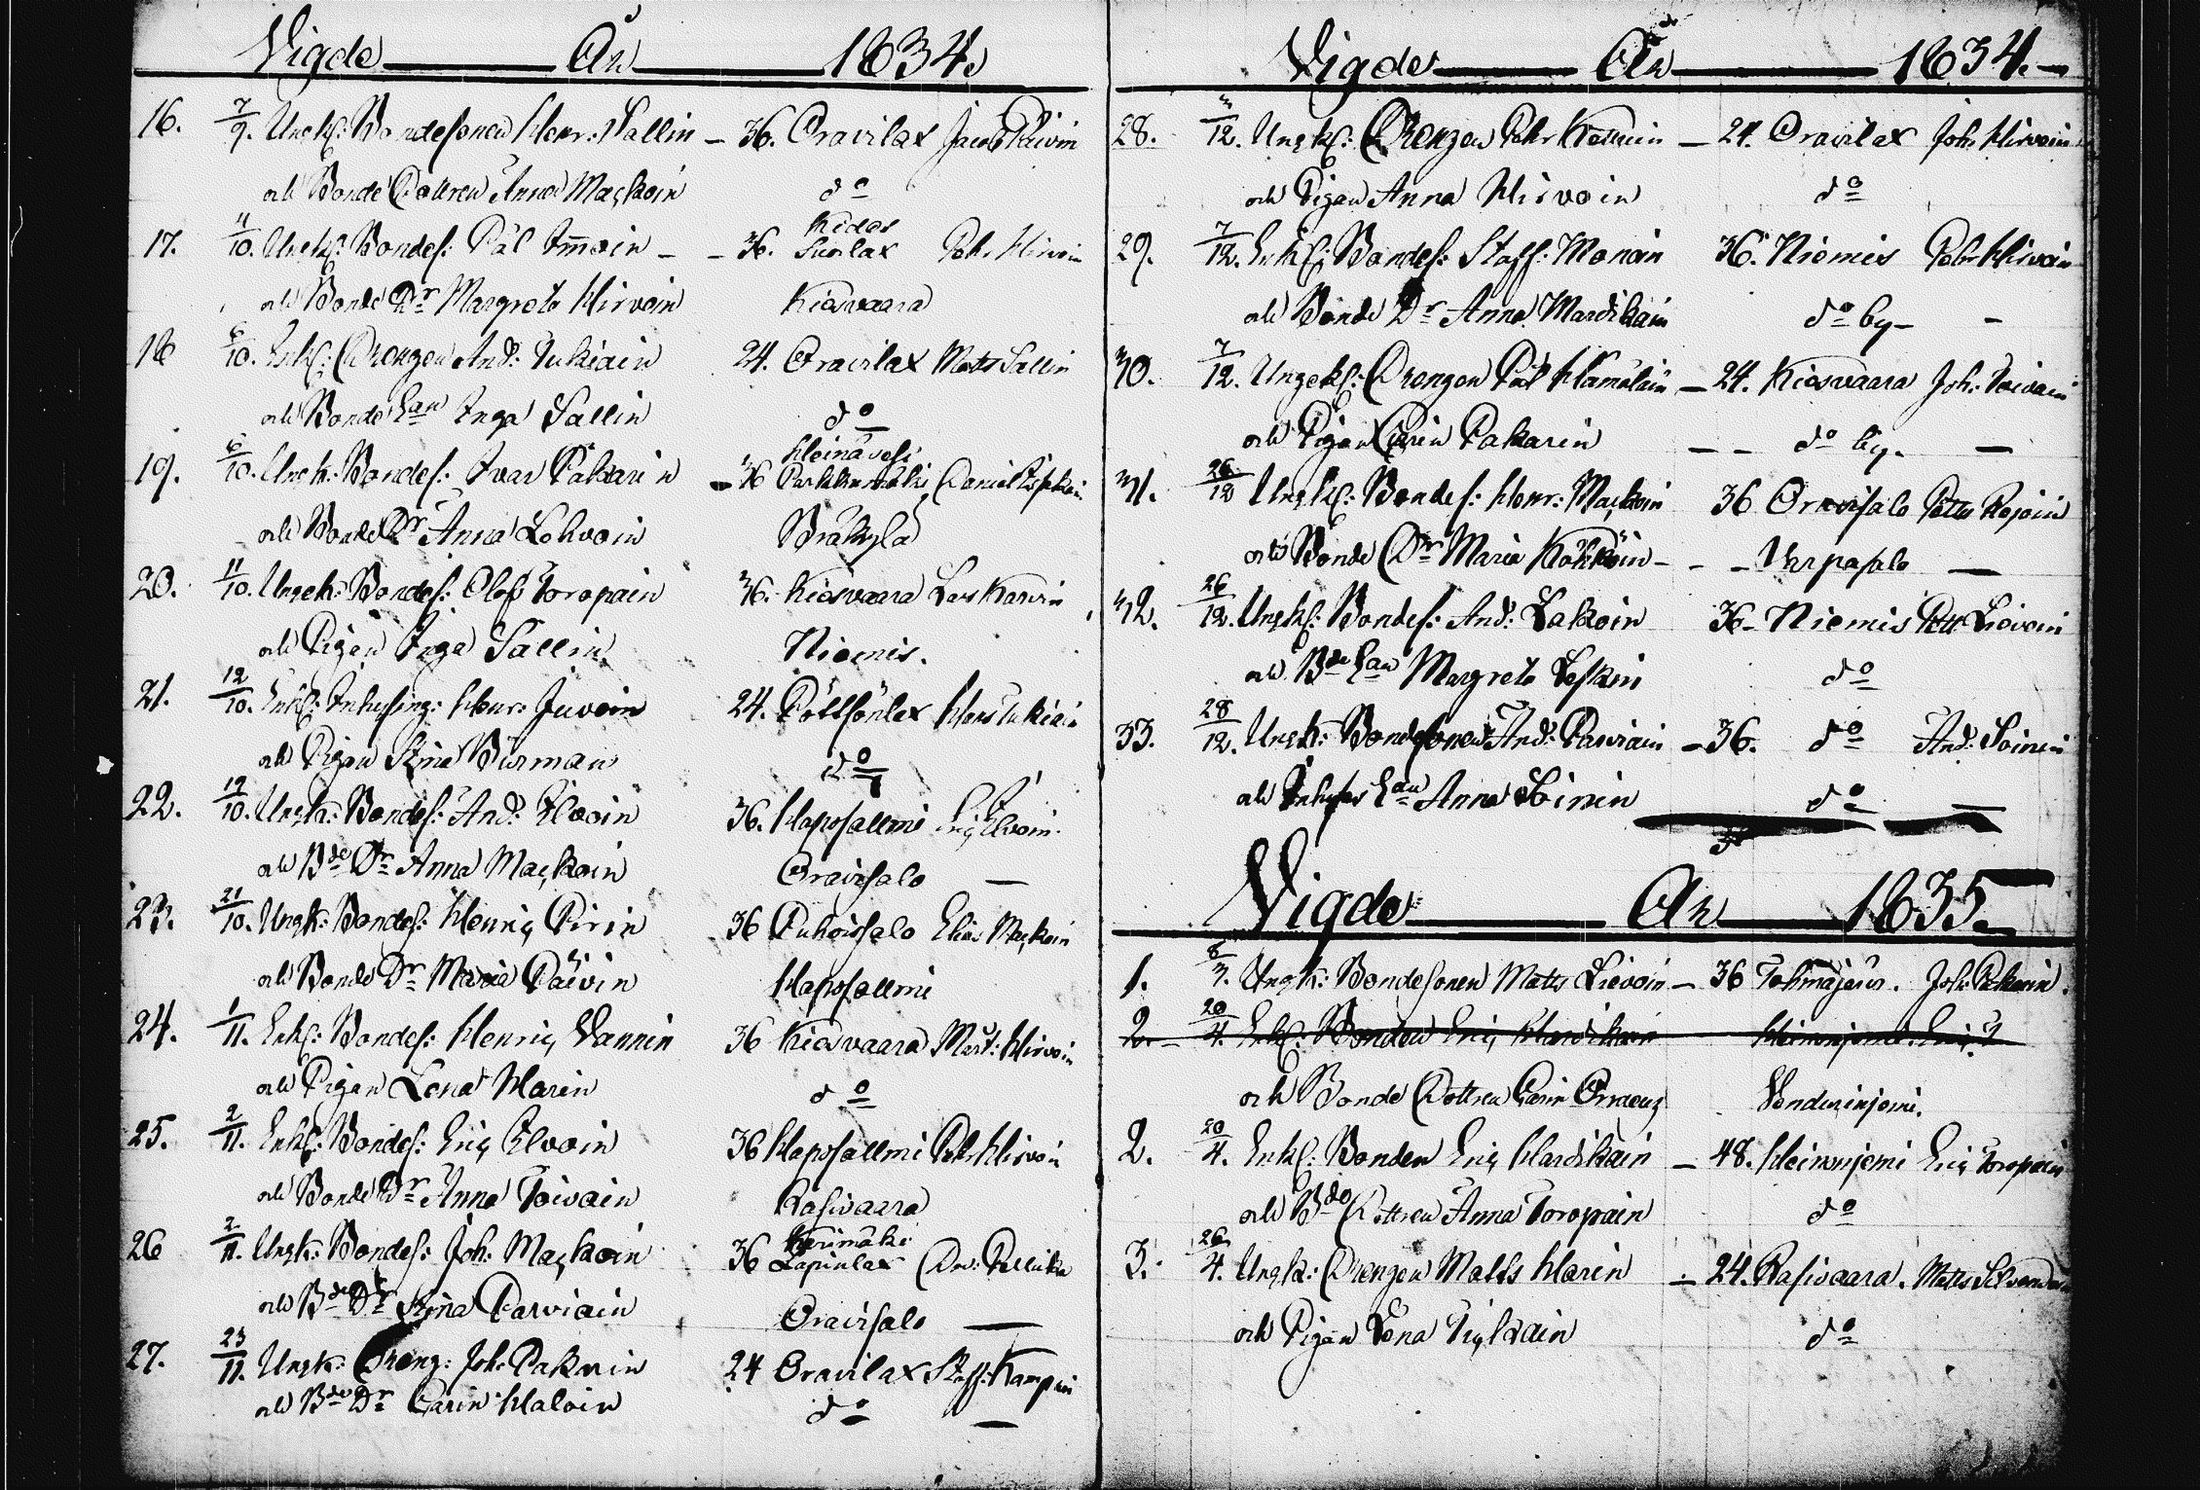 Vigde År 1834.
16. 7/9. Ungk: Bondesonen Henr: Sallin – 36. Oravilax Jacob Päivin
och Bonde Dottren Anna Maçkoin do
Kides
17. 11/10. Ungk: Bondes: Pål Immoin – – 36. Suorlax Petr Hirvoin
och Bonde Dr Margreta Hirvoin Kiesvaara
18 5/10. Enkl: Drengen And: Tukiain 24. Oravilax Matts Sallin
och Bonde Ean Inga Sallin do
Heinävesi
19. 6/10. Ungk: Bondes: Ivar Pakarin – 36 Daniel
och Bonde Dr Anna Lohvoin Bråkylä
20. 11/10. Ungk: Bondes: Olof Toropain 36. Kiesvaara Lars Karvin
och Pigan Inga Sallin Niemis.
21. 12/10. Enkl: Inhysing: Henr: Juvoin 24. Pötsönlax Hens Tukiain
och Pigan Stina Burman do
22. 19/10. Ungk: Bondes: And: Elvoin 36. Hapasallmi Eriç Elvoin.
och Bde Dr Anna Maçkoin Oravisalo —
23. 21/10. Ungk: Bondes: Henriç Pirin 36 Puhoissalo Elias Maçkoin
och Bonde Dr Maria Päivin Hapasallmi
24. 1/11. Enkl: Bondes: Henriç Vannin 36 Kiesvaara Mart: Hirvoin
och Pigan Lena Harin do
25. 2/11. Enkl: Bondes: Eriç Elvoin 36 Hapasallmi Petr Hirvoin
och Bonde Dr Anna Toivain Rasivaara
Kerimäki
26 2/11. Ungk: Bondes: Joh: Maçkoin 36 Lapinlax Dav: Pellika
och Bde Dr Stina Parviain Oravisalo —
27. 23/11. Ungk: Dreng: Joh: Pakarin 24 Oravilax Staff: Kampin
och Bde Dr Carin Haloin do —
Vigde År 1834. —
28. 3/12. Ungk: Drengen Petr – 24. Oravilax Joh: Hirvoin
och Pigan Anna Hirvoin do
29. 7/12. Enkl: Bondes: Staff: Monoin 36. Niemis Petr Hirvoin
och Bonde Dr Anna Mardikain do by – –
30. 7/12. Ungk: Drengen Pål Hämäläin – 24. Kiesvaara Joh: Toivain
och Pigan Carin Pakarin – – do by. —
31. 26/12 Ungk: Bondes: Henr: Maçkoin 36 Oravisalo Petter Rojoin
och Bonde Dr Maria Köhköin – – – Varpasalo —
32. 26/12. Ungk: Bondes: And: Lakoin 36 – Niemis Pett: Lievoin
och Bde Ean Margreta Leskin do
33. 28/12. Ungk: Bondesonen And: Parviain – 36. do And: Soinin
och Inhyses Ean Anna Soinin do —
Vigde År 1835.
1. 6/3. Ungk: Bondesonen Matts Lievoin – 36 Tohmajärvi. Joh: Pakarin.
2. 20/4. Enkl: Bonden Eriç Hardikain Heinonjemi. Eriç T
och Bonde Dottren Carin Orraeus Vendusinjemi.
2. 20/4. Enkl: Bonden Eriç Hardikain – 48. Heinonjemi Eriç Toropain
och Bde Dottren Anna Toropain do
3. 26/4. Ungk: Drengen Matts Harin – 24. Rasivaara. Matts Silvendoin
och Pigan Lena do